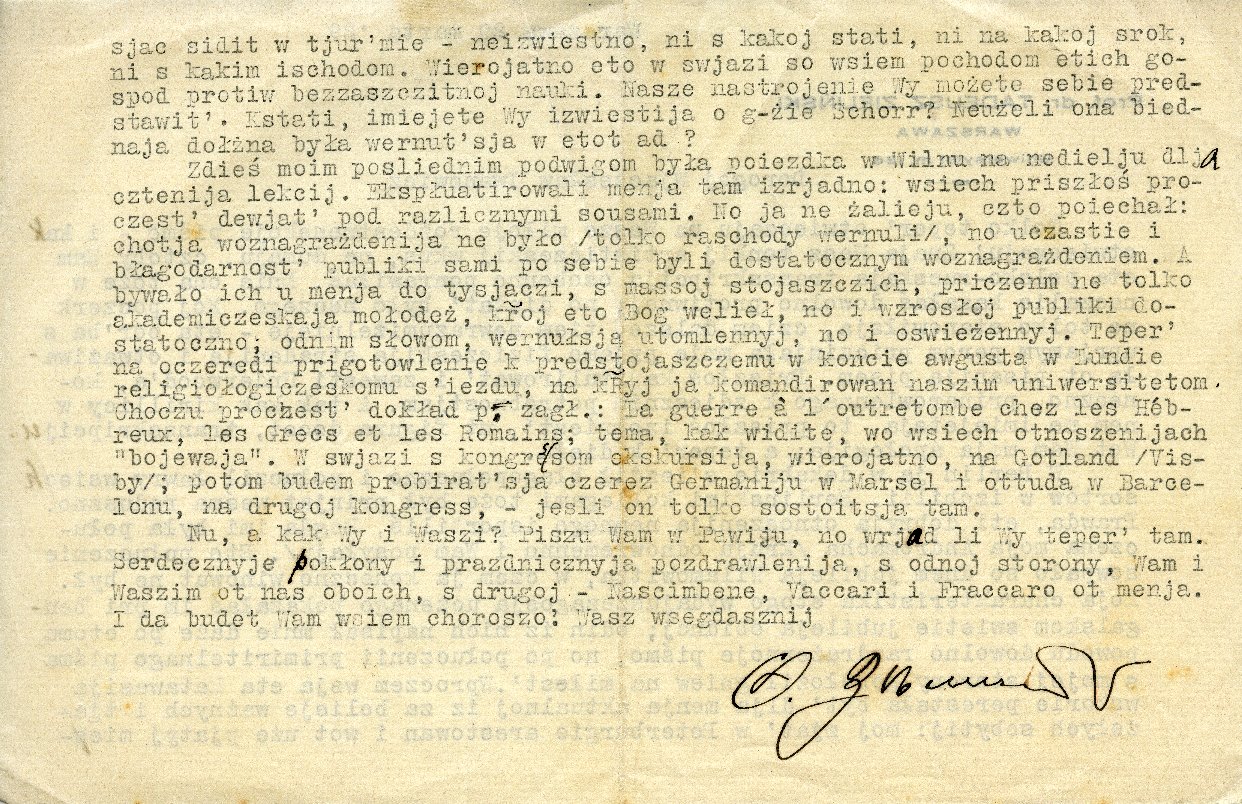 sjac sidit w tjur'mie - neizwiestno, ni s kakoj stati, ni na kakoj srok,
ni s kakim ischodom. Wierojatno eto w swjazi so wsiem pochodom etich go-
spod protiw bezzaszczitnoj nauki. Nasze nastrojenie Wy możete sebie pred-
stawit'. Kstati, imiejete Wy izwiestija o g-żie Schorr? Neużeli ona bied-
naja dołżna była wernut'sja w etot ad ?
Zdieś moim posliednim podwigom była poiezdka w Wilnu na nedielju dlja
cztenija lekcij. Ekspłuatirowali menja tam izrjadno: wsiech priszłoś pro-
czest' dewjat' pod razlicznymi sousami. No ja ne żalieju, czto poiechał:
chotja woznagrażdenija ne było /tolko raschody wernuli/, no uczastie i
błagodarnost' publiki sami po sebie byli dostatocznym woznagrażdeniem. A
bywało ich u menja do tysjaczi, s massoj stojaszczich, priczenm ne tolko
akademiczeskaja mołodeż, křoj eto Bog weliel, no i wzrosłoj publiki do-
statoczno; odnim słowom, wernułsja utomlennyj, no i oswieżennyj. Teper'
na oczeredi prigotowlenie k predstojaszczemu w koncie awgusta w Lundie
religiołogiczeskomu s'iezdu, na křyj ja komandirowan naszim uniwersitetom.
Choczu proczest' dokład p. zagł.: La guerre à l'outretombe chez les Héb-
reux, les Grecs et les Romains; tema, kak widite, wo wsiech otnoszenijach
"bojewaja". W swjazi s kongressom ekskursija, wierojatno, na Gotland /Vis-
by/; potom budem probirat'sja czerez Germaniju w Marsel i ottuda w Barce-
lonu, na drugoj kongress, - jesli on tolko sostoitsja tam.
Nu, a kak Wy i Waszi? Piszu Wam w Pawiju, no wrjad li Wy teper' tam.
Serdecznyje pokłony i prazdnicznyja pozdrawlenija, s odnoj storony, Wam i
Waszim ot nas oboich, s drugoj - Nascimbene, Vaccari i Fraccaro ot menja.
I da budet Wam wsiem choroszo! Wasz wsegdasznij